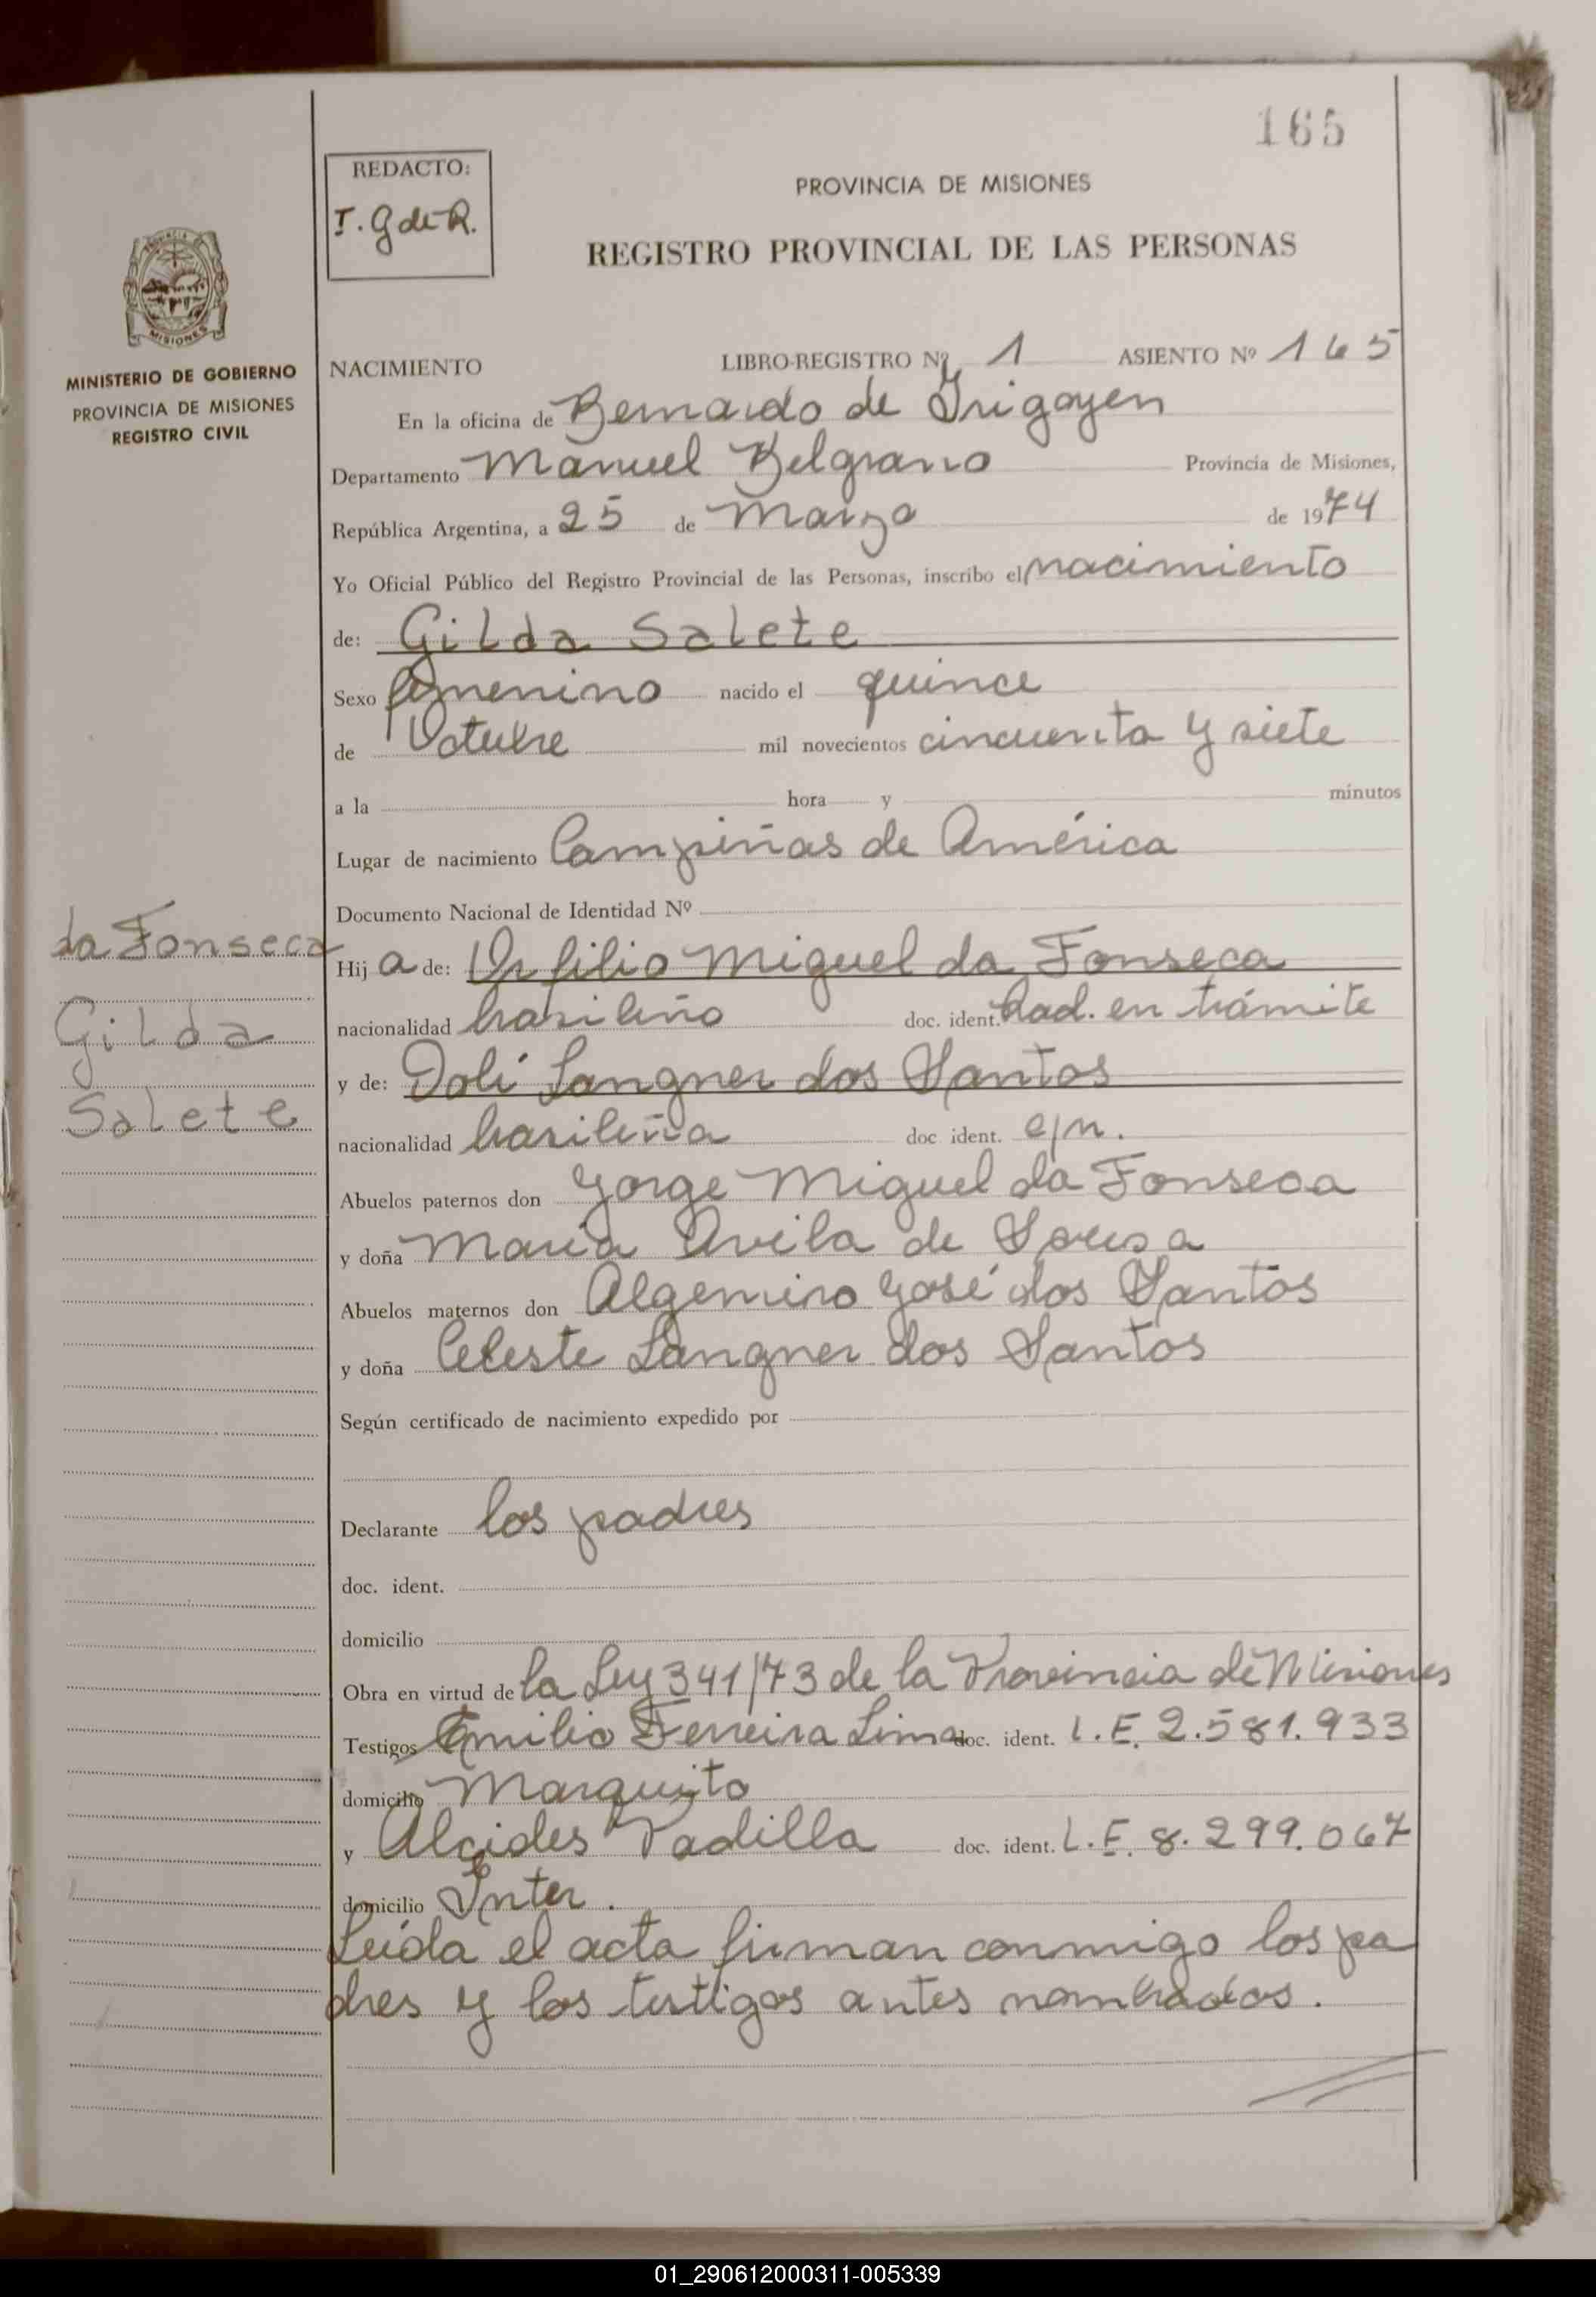 165
REDACTO:
I. G de R.
PROVINCIA DE MISIONES
REGISTRO PROVINCIAL DE LAS PERSONAS
MISIONES
MINISTERIO DE GOBIERNO
PROVINCIA DE MISIONES
REGISTRO CIVIL
NACIMIENTO LIBRO-REGISTRO Nº 1 ASIENTO Nº 165
En la oficina de Bernardo de Irigoyen
Departamento Manuel Belgrano Provincia de Misiones,
República Argentina, a 25 de Marzo de 1974
Yo Oficial Público del Registro Provincial de las Personas, inscribo el nacimiento
de: Gilda Salete
Sexo femenino nacido el quince
de Octubre mil novecientos cincuenta y siete
a la hora y minutos
Lugar de nacimiento Campiñas de América
Documento Nacional de Identidad Nº
da Fonseca
Gilda
Salete
Hij a de: Orfilio Miguel da Fonseca
nacionalidad brasileño doc. ident. Rad. en trámite
y de: Doli Langner dos Santos
nacionalidad brasileña doc ident. e/n.
Abuelos paternos don Jorge Miguel da Fonseca
y doña María Avila de Sousa
Abuelos maternos don Algemiro José dos Santos
y doña Celeste Langner dos Santos
Según certificado de nacimiento expedido por
Declarante los padres
doc. ident.
domicilio
Obra en virtud de la Ley 341/73 de la Provincia de Misiones
Testigos Emilio Ferreira Lima doc. ident. L.E. 2.581.933
domicilio Marquito
y Alcides Padilla doc. ident. L.E. 8.299.067
domicilio Inter.
Leída el acta firman conmigo los pa
dres y los testigos antes nombrados.
01_290612000311-005339